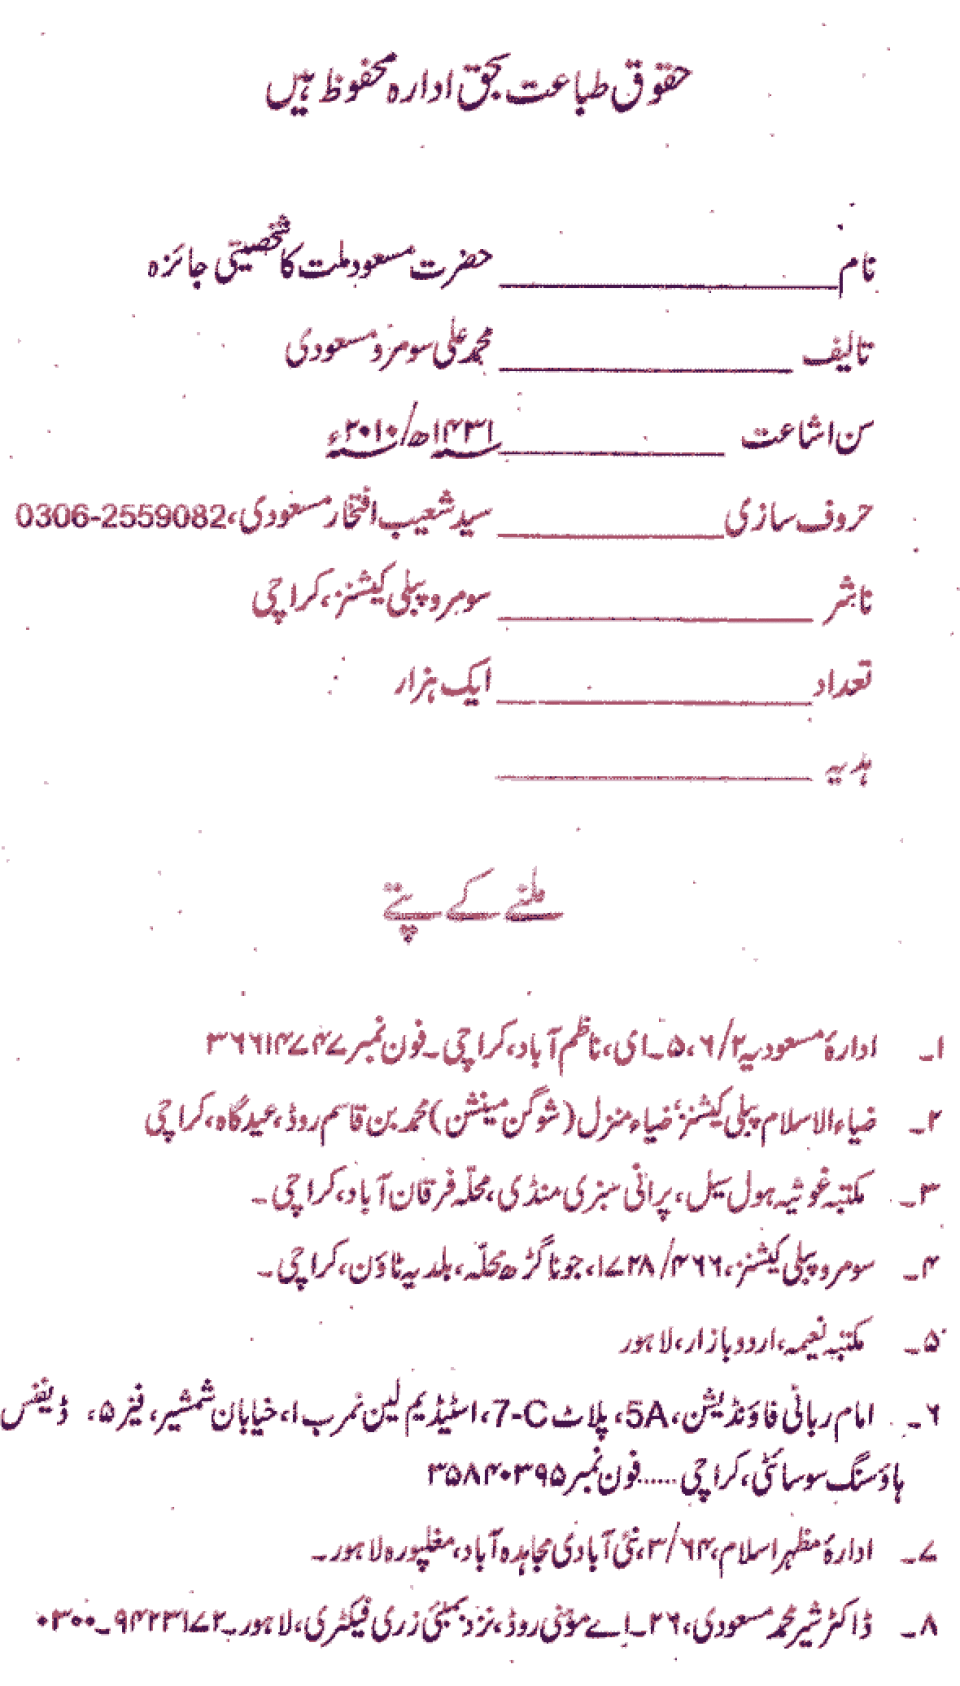 حقوق طباعت بحق ادارہ محفوظ ہیں
نام ــــــــــ حضرت مسعود ملت کا شخصیتی جائزہ
تالیف ــــــــــ محمد علی سومرو مسعودی
سن اشاعت ــــــــــ ۱۴۳۱ھ/۲۰۱۰ء
حروف سازی ــــــــــ سید شعیب افتخار مسعودی، 0306-2559082
ناشر ــــــــــ سومرو پبلی کیشنز، کراچی
تعداد ــــــــــ ایک ہزار
ہدیہ ــــــــــ
ملنے کے پتے
۱۔ ادارۂ مسعودیہ ۶/۲، ۵۔ای، ناظم آباد، کراچی۔ فون نمبر ۳۶۶۱۴۷۴۷
۲۔ ضیاء الاسلام پبلی کیشنز، ضیاء منزل (شوگن مینشن) محمد بن قاسم روڈ، عیدگاہ، کراچی
۳۔ مکتبہ غوثیہ ہول سیل، پرانی سبزی منڈی، محلّہ فرقان آباد، کراچی۔
۴۔ سومرو پبلی کیشنز، ۴۶۶/۱۷۲۸، جونا گڑھ محلّہ، بلدیہ ٹاؤن، کراچی۔
۵۔ مکتبہ نعیمہ، اردو بازار، لاہور
۶۔ امام ربانی فاؤنڈیشن، 5A، پلاٹ 7-C، اسٹیڈیم لین نمرب ۱، خیابان شمشیر، فیز ۵، ڈیفنس
ہاؤسنگ سوسائٹی، کراچی ...... فون نمبر ۳۵۸۴۰۳۹۵
۷۔ ادارۂ مظہر اسلام، ۳/۶۴، نئی آبادی مجاہدہ آباد، مغلپورہ لاہور۔
۸۔ ڈاکٹر شیر محمد مسعودی، ۲۶۔اے مؤنی روڈ، نزد بمبئی زری فیکٹری، لاہور۔ ۹۴۲۳۱۷۲۔۰۳۰۰